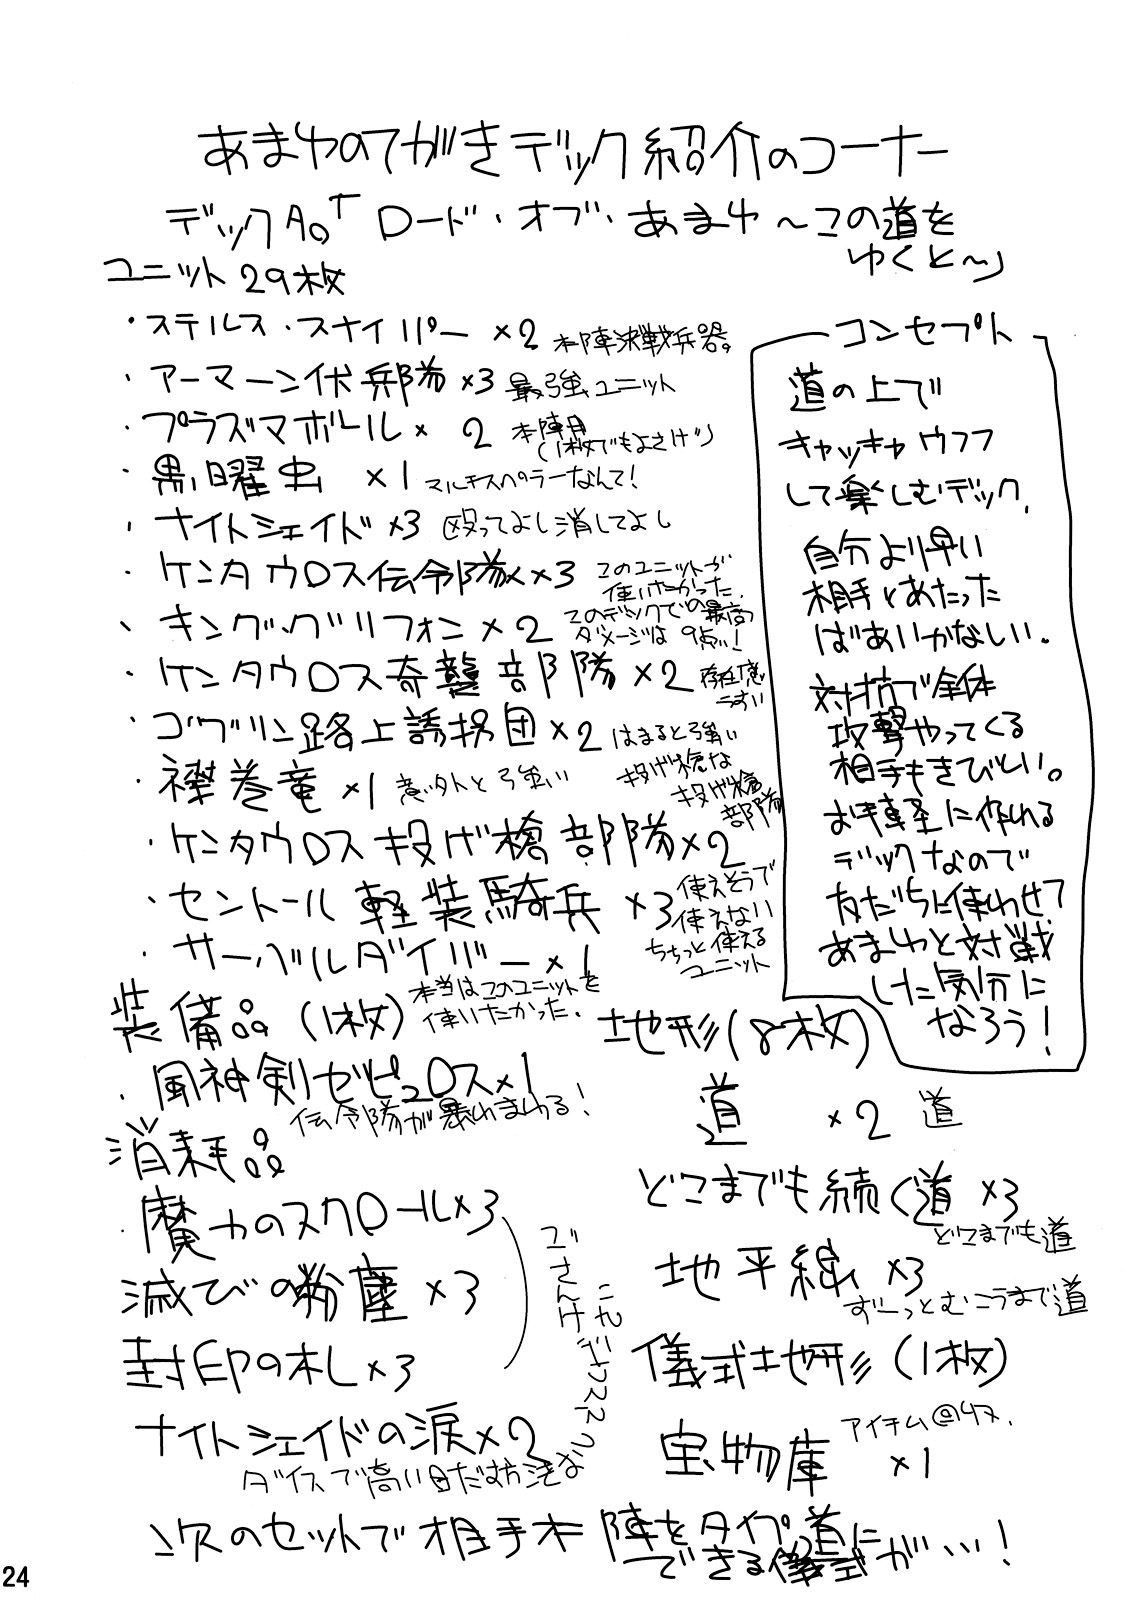 あまねのてがきデック紹介のコーナー
デックAの「ロード・オブ・あまね〜この道を
ゆくと〜」
ユニット 29枚
・ステルス・スナイパー ×2 本陣決戦兵器。
・アーマーン伏兵部隊 ×3 最強ユニット
・プラズマボール× 2 本陣用
(1枚でもよさげ")
・黒曜虫 ×1 マルチスペラーなんて!
・ナイトシェイド×3 殴ってよし消してよし
・ケンタウロス伝令隊××3 このユニットが
使いたかった.
・キング・グリフォン×2 このデックでの最高
ダメージは9点!
・ケンタウロス奇襲部隊×2 存在感
うすい
・ゴブリン路上誘拐団×2 はまると強い
・襟巻竜×1 意外と強い
・ケンタウロス投げ槍部隊×2
投げ槍な
投げ槍
部隊
・セントール軽装騎兵 ×3 使えそうで
使えない
ちょっと使える
ユニット
・サーバルダイバー×1
本当はこのユニットを
使いたかった.
コンセプト
道の上で
キャッキャウフフ
して楽しむデック.
自分より早い
相手とあたった
ばあいかなしい。
対抗で全体
攻撃やってくる
相手もきびしい。
お手軽に作れる
デックなので
友だちに使わせて
あまねと対戦
した気分に
なろう!
装備品(1枚)
・風神剣ゼピュロス×1
伝令隊が暴れまわる!
消耗品
・魔力のスクロール×3
滅びの粉塵×3
封印の札×3
ナイトシェイドの涙×2
ダイスで高い目だせば
地形(8枚)
道 ×2 道
どこまでも続く道×3
どこまでも道
地平線 ×3
ずーっとむこうまで道
儀式地形(1枚)
宝物庫 ×1
次のセットで相手本陣をタイプ:道に
できる儀式が…!
24